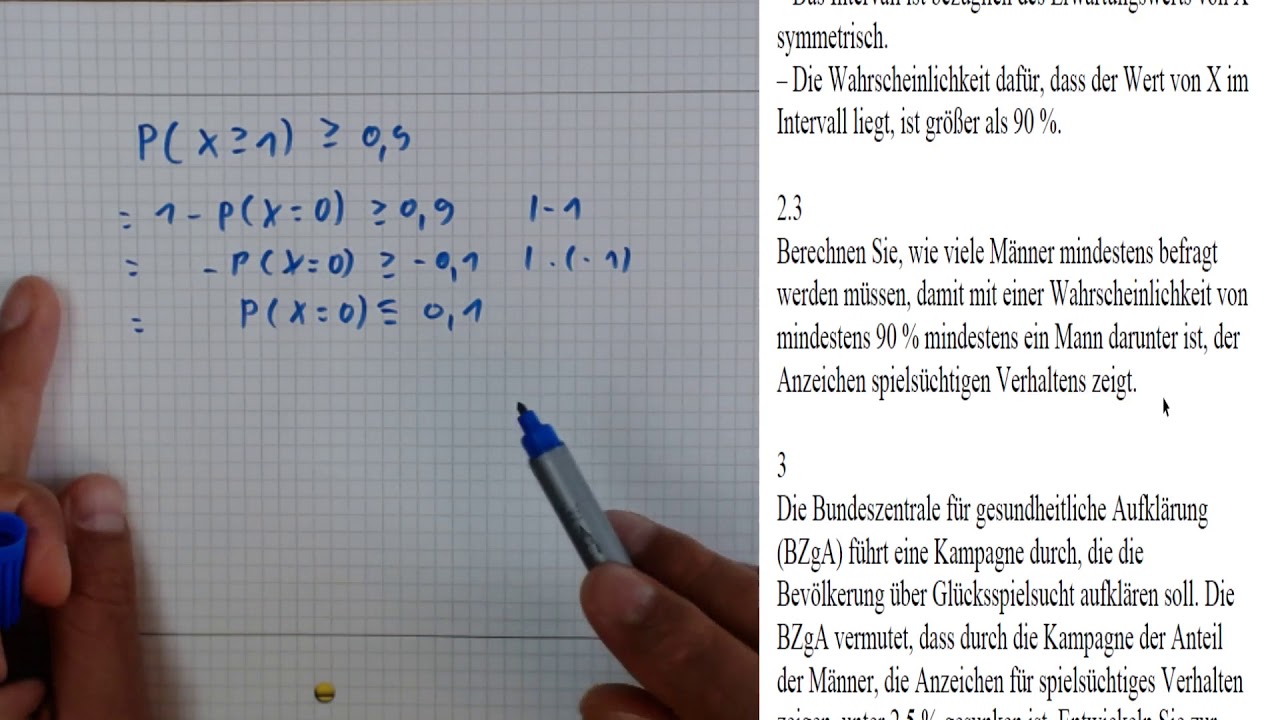 P(X≥1) ≥ 0,9
= 1 - P(X=0) ≥ 0,9 | -1
= - P(X=0) ≥ -0,1 | · (-1)
= P(X=0) ≤ 0,1
– Das Intervall ist bezüglich des Erwartungswerts von X
symmetrisch.
– Die Wahrscheinlichkeit dafür, dass der Wert von X im
Intervall liegt, ist größer als 90 %.
2.3
Berechnen Sie, wie viele Männer mindestens befragt
werden müssen, damit mit einer Wahrscheinlichkeit von
mindestens 90 % mindestens ein Mann darunter ist, der
Anzeichen spielsüchtigen Verhaltens zeigt.
3
Die Bundeszentrale für gesundheitliche Aufklärung
(BZgA) führt eine Kampagne durch, die die
Bevölkerung über Glücksspielsucht aufklären soll. Die
BZgA vermutet, dass durch die Kampagne der Anteil
der Männer, die Anzeichen für spielsüchtiges Verhalten
zeigen, unter 2,5 % gesunken ist. Entwickeln Sie zur